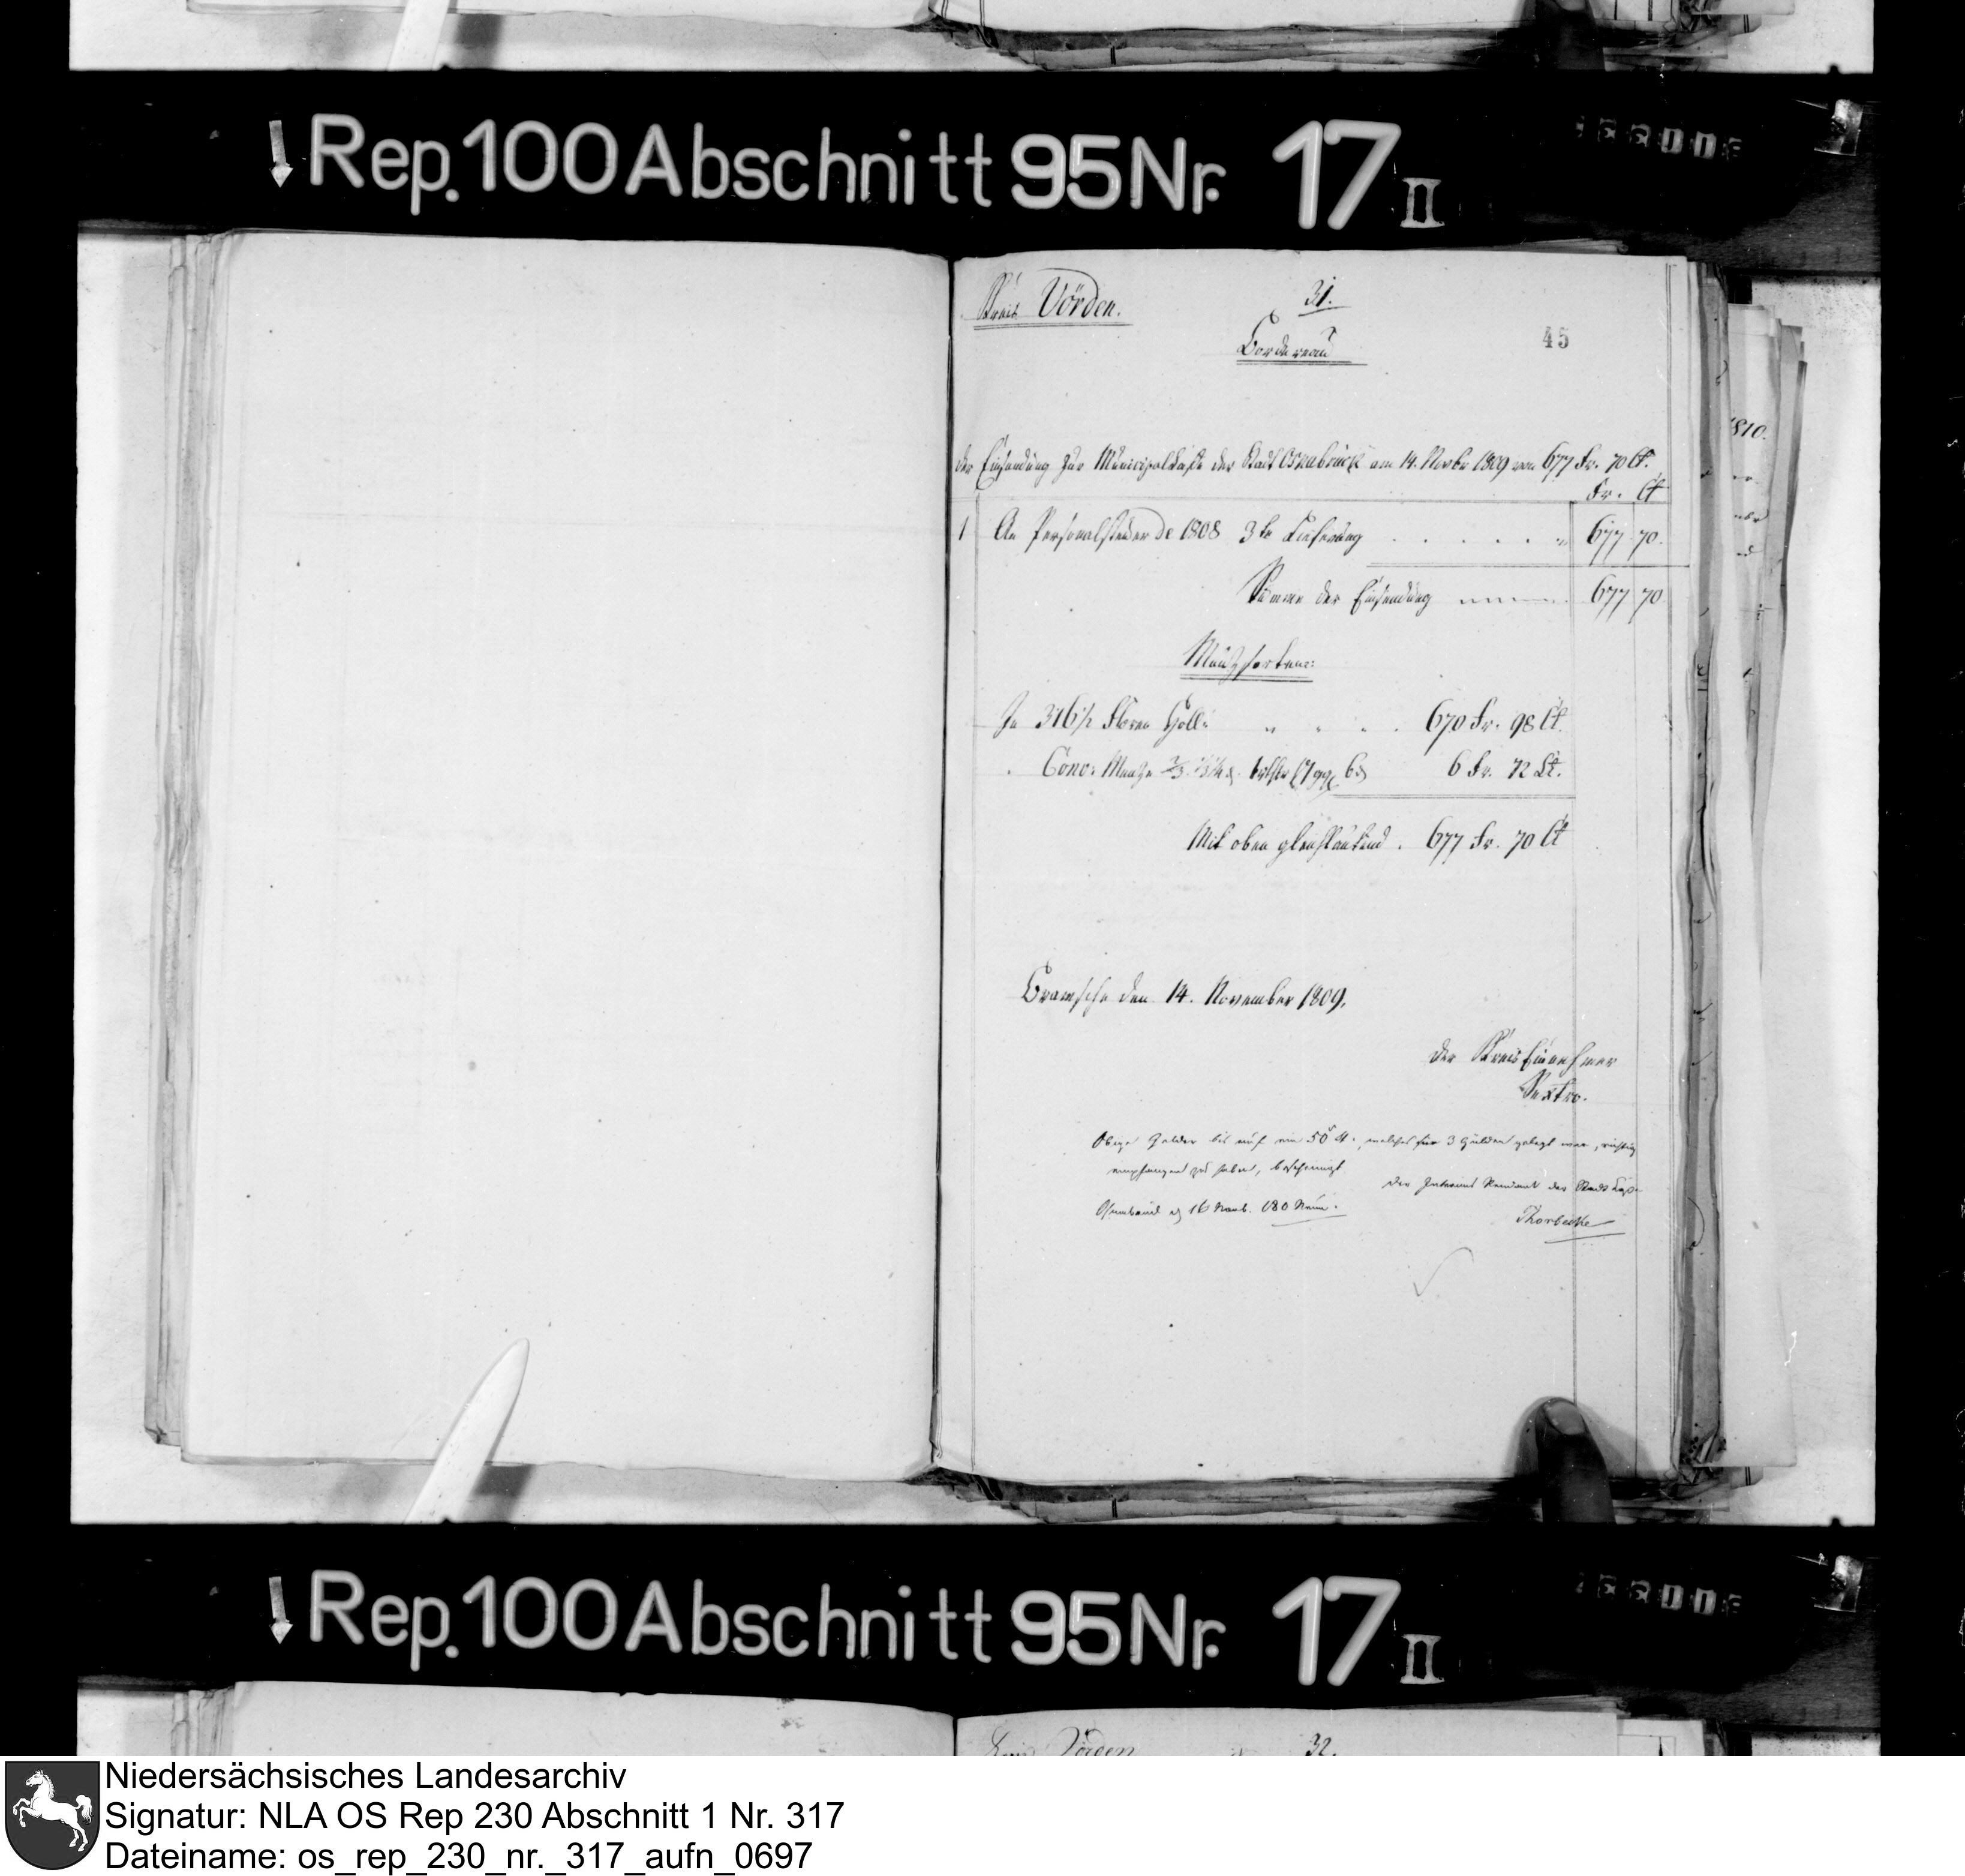 Rep. 100 Abschnitt 95 Nr. 17 II
Kreis Vörden.
31.
Bordereau
45
der Einsendung zur Municipalkasse der Stadt Osnabrück am 14. Novbr 1809 von 677 Fr. 70 Ct.
Fr. Ct
1 An Personalsteuer de 1808 3te Lieferung 677 70.
Summe der Einsendung 677 70
Münzsorten:
In 316 1/2 Floren Holl: 670 Fr. 98 Ct.
Conv: Münze 2/3 6 Fr. 72 Ct.
Mit oben gleichlautend. 677 Fr. 70 Ct
Bramsche den 14. November 1809.
Der Kreis Einnehmer
Sextro.
Obige Gelder bis auf ein 50 welches für 3 Gulden gelegt war, richtig
empfangen zu haben, bescheinigt
der Interims Rendant der Stadt
Osnabrück 16 Novb. 180 Neun.
Thorbecke
1810.
Rep. 100 Abschnitt 95 Nr. 17 II
Kreis Vörden
32.
Niedersächsisches Landesarchiv
Signatur: NLA OS Rep 230 Abschnitt 1 Nr. 317
Dateiname: os_rep_230_nr._317_aufn_0697